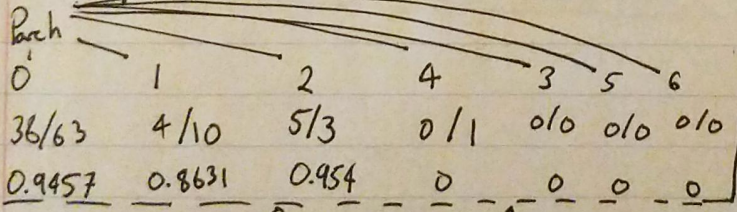 Parch
0 1 2 4 3 5 6
36/63 4/10 5/3 0/1 0/0 0/0 0/0
0.9457 0.8631 0.954 0 0 0 0